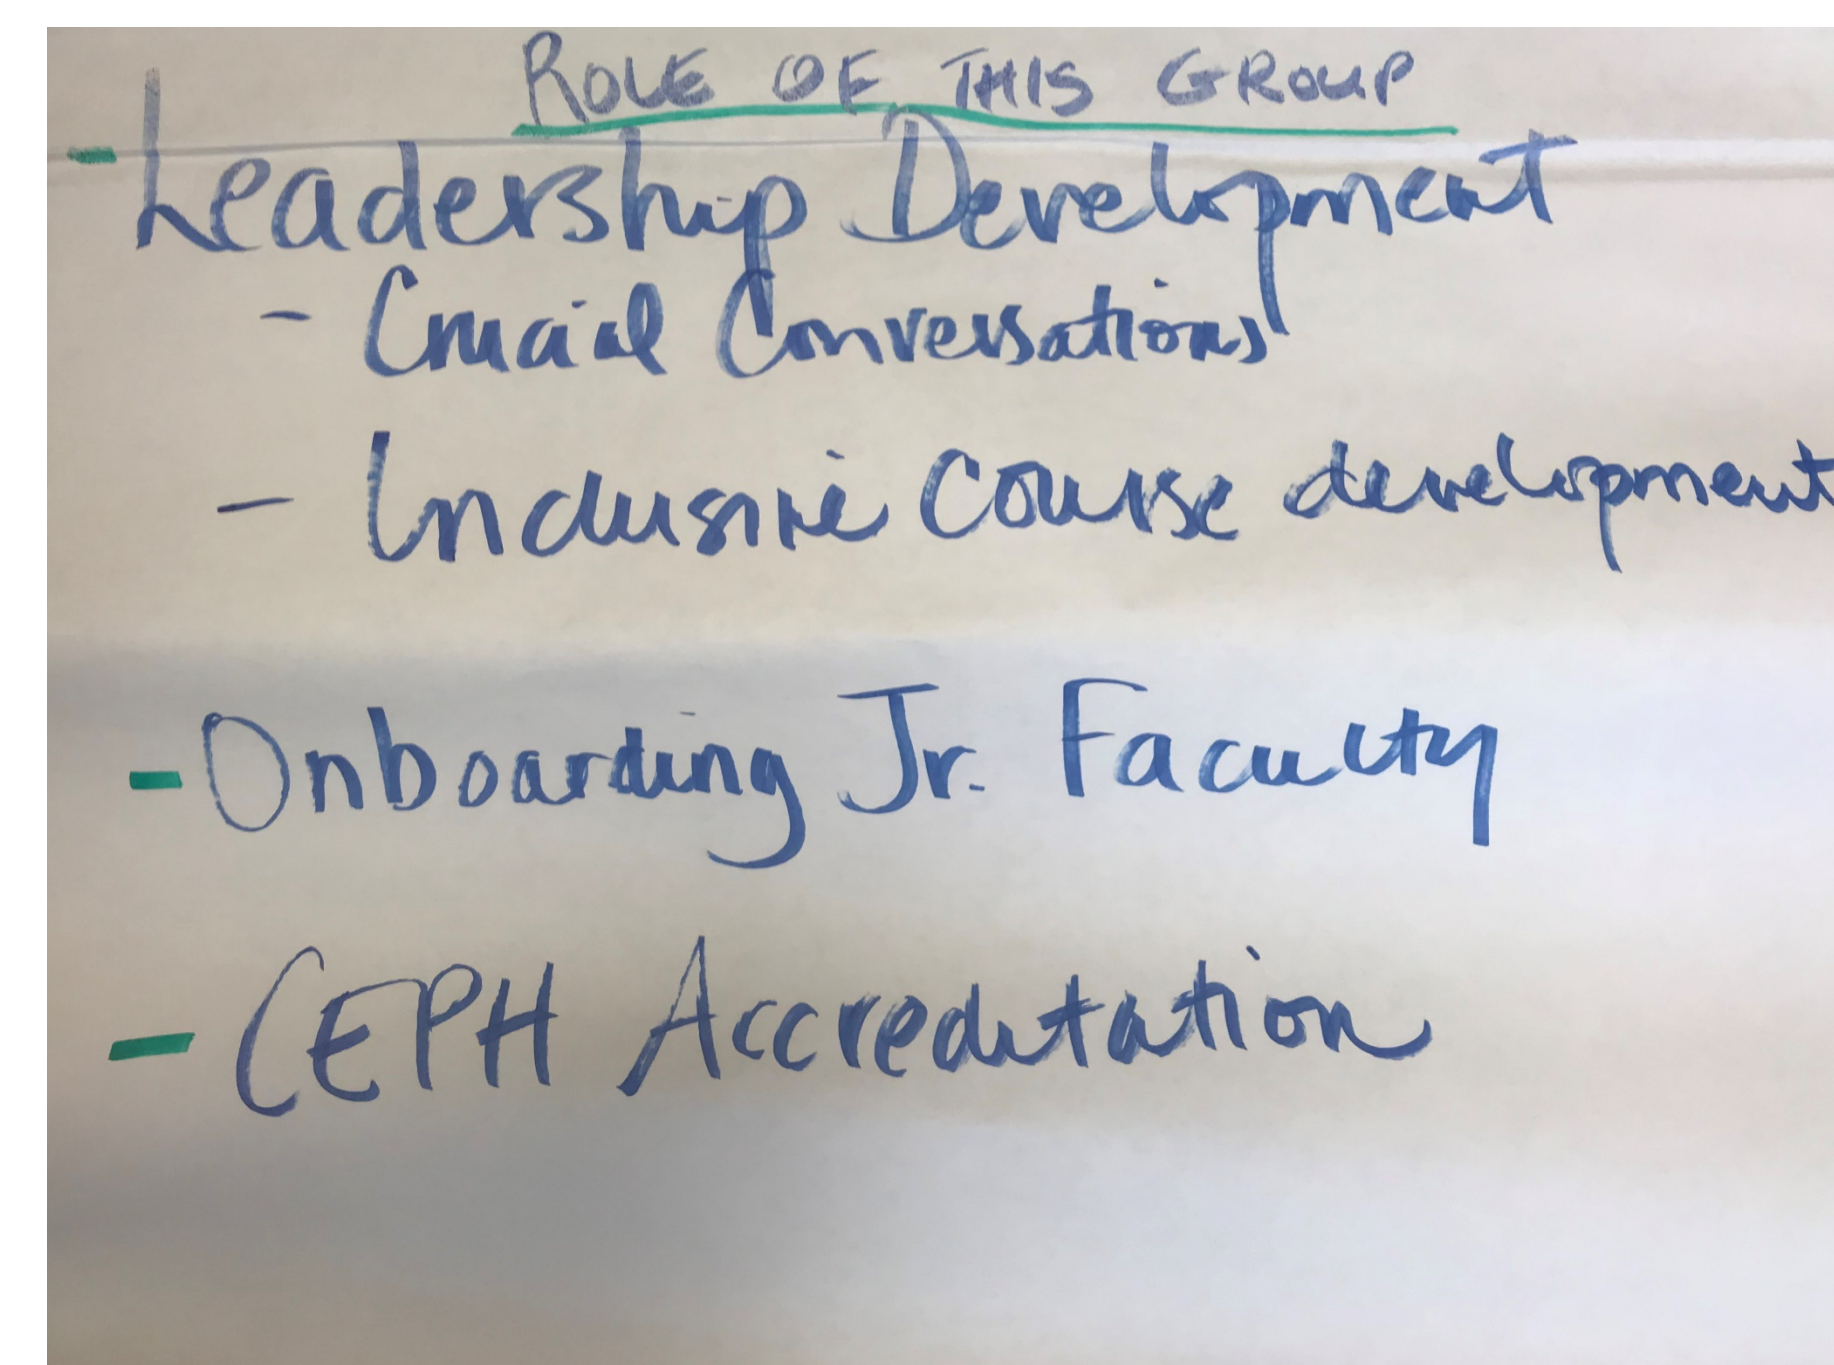 ROLE OF THIS GROUP
- Leadership Development
- Crucial Conversations
- Inclusive Course development
- Onboarding Jr. Faculty
- CEPH Accreditation